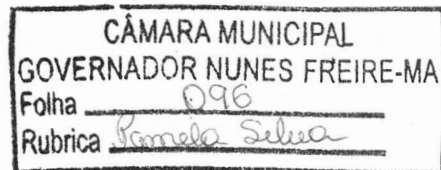 CÂMARA MUNICIPAL
GOVERNADOR NUNES FREIRE-MA
Folha 096
Rubrica Pamela Silva